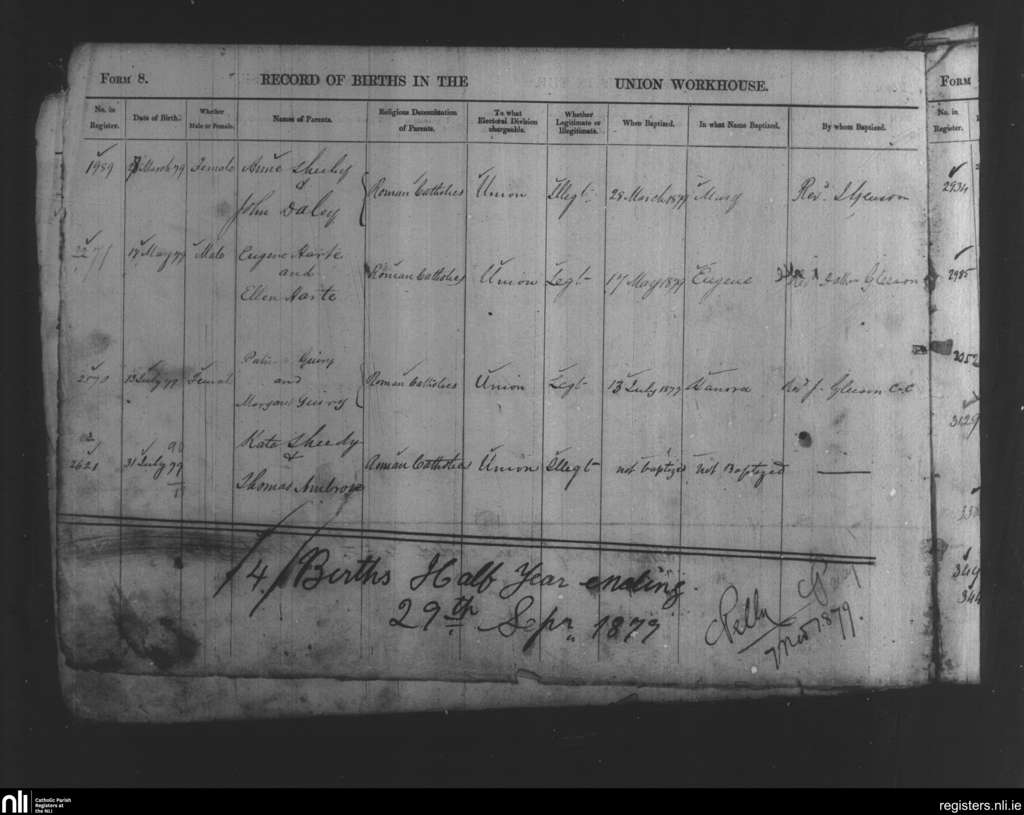 FORM 8. RECORD OF BIRTHS IN THE UNION WORKHOUSE.
No. in Register. Date of Birth. Whether Male or Female. Names of Parents. Religious Denomination of Parents. To what Electoral Division chargeable. Whether Legitimate or Illegitimate. When Baptized. In what Name Baptized. By whom Baptized.
1989 March 79 Female Annie Sheehy & John Daley Roman Catholics Union Illegt. 28 March 1879 Mary Revd.
2271 May 79 Male Eugene Harte and Ellen Harte Roman Catholics Union Legt. 17 May 1879 Eugene Gleeson
2570 July 79 Femal and Roman Catholics Union Legt. 13 July 1879 Revd. J. Gleeson
2621 31 July 79 Kate Sheedy & Thomas Ambrose Roman Catholics Union Illegt not baptized not Baptized
/4/ Births Half Year ending
29th Sepr. 1879
1879.
FORM
No. in Register.
2934
2985
3052
3129
349
nli Catholic Parish Registers at the NLI
registers.nli.ie